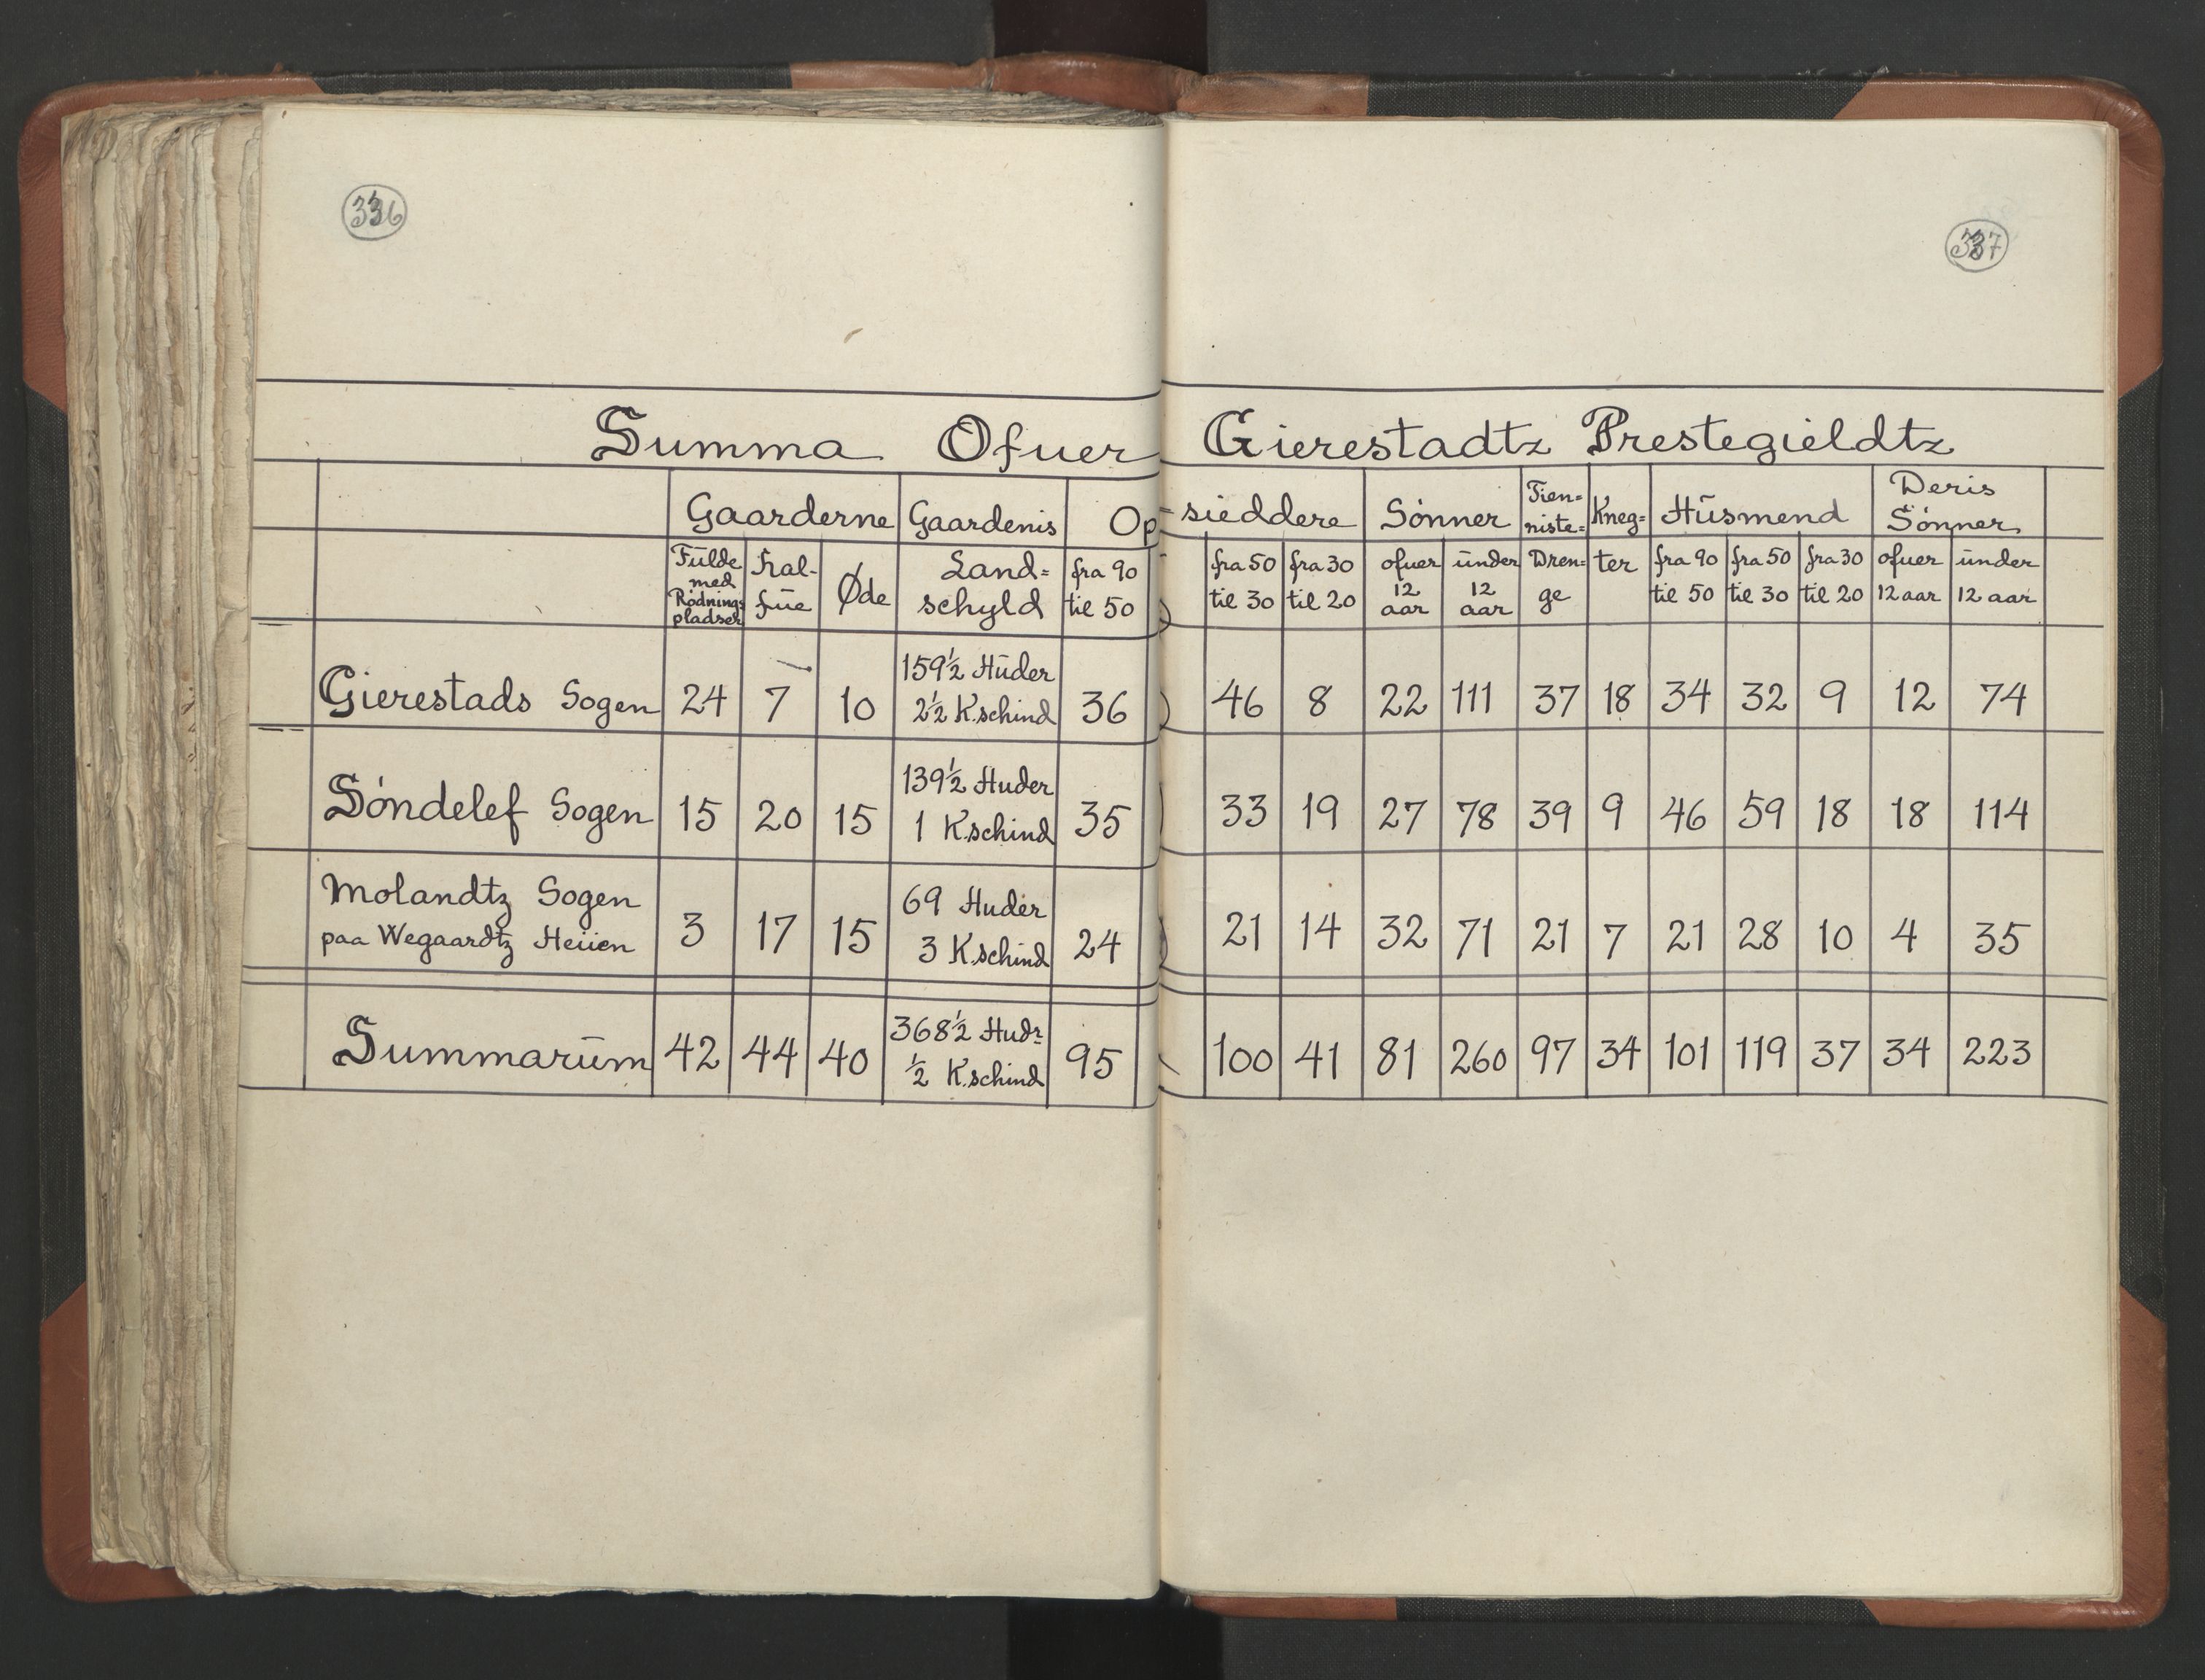 336
337
Summa Ofuer Gierestadtz Prestegieldtz
Gaarderne Gaardenis Op-sieddere Sónner Tien=niste= Kneg= Hūsmend Deris Sönner
Fūlde med Rödnings pladser Hal-fūe Øde Land=schyld fra 90 til 50 fra 50 til 30 fra 30 til 20 ofuer 12 aar ūnder 12 aar Dren-ge ter fra 90 til 50 fra 50 til 30 fra 30 til 20 ofuer 12 aar ūnder 12 aar
Gierestads Sogen 24 7 10 159½ Hūder 2½ K.schind 36 46 8 22 111 37 18 34 32 9 12 74
Sóndelef Sogen 15 20 15 139½ Huder 1 K.schind 35 33 19 27 78 39 9 46 59 18 18 114
Molandtz Sogen paa Wegaardtz Heiien 3 17 15 69 Huder 3 K.schind 24 21 14 32 71 21 7 21 28 10 4 35
Summarūm 42 44 40 368½ Hudr= ½ K.schind 95 100 41 81 260 97 34 101 119 37 34 223